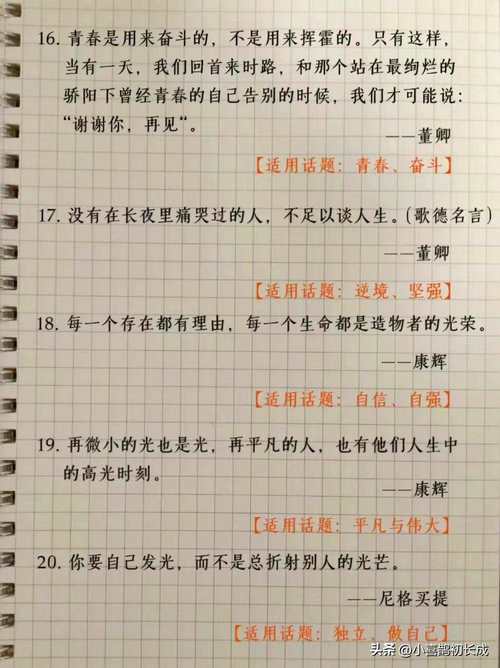 16. 青春是用来奋斗的，不是用来挥霍的。只有这样，
当有一天，我们回首来时路，和那个站在最绚烂的
骄阳下曾经青春的自己告别的时候，我们才可能说：
“谢谢你，再见“。
——董卿
【适用话题：青春、奋斗】
17. 没有在长夜里痛哭过的人，不足以谈人生。（歌德名言）
——董卿
【适用话题：逆境、坚强】
18. 每一个存在都有理由，每一个生命都是造物者的光荣。
——康辉
【适用话题：自信、自强】
19. 再微小的光也是光，再平凡的人，也有他们人生中
的高光时刻。
——康辉
【适用话题：平凡与伟大】
20. 你要自己发光，而不是总折射别人的光芒。
——尼格买提
【适用话题：独立、做自己】
头条 @小喜鹊初长成